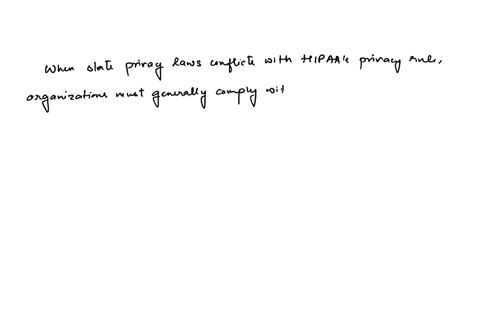 When state privay laws conflicts with HIPAA's privacy rule,
organizations must generally comply wit